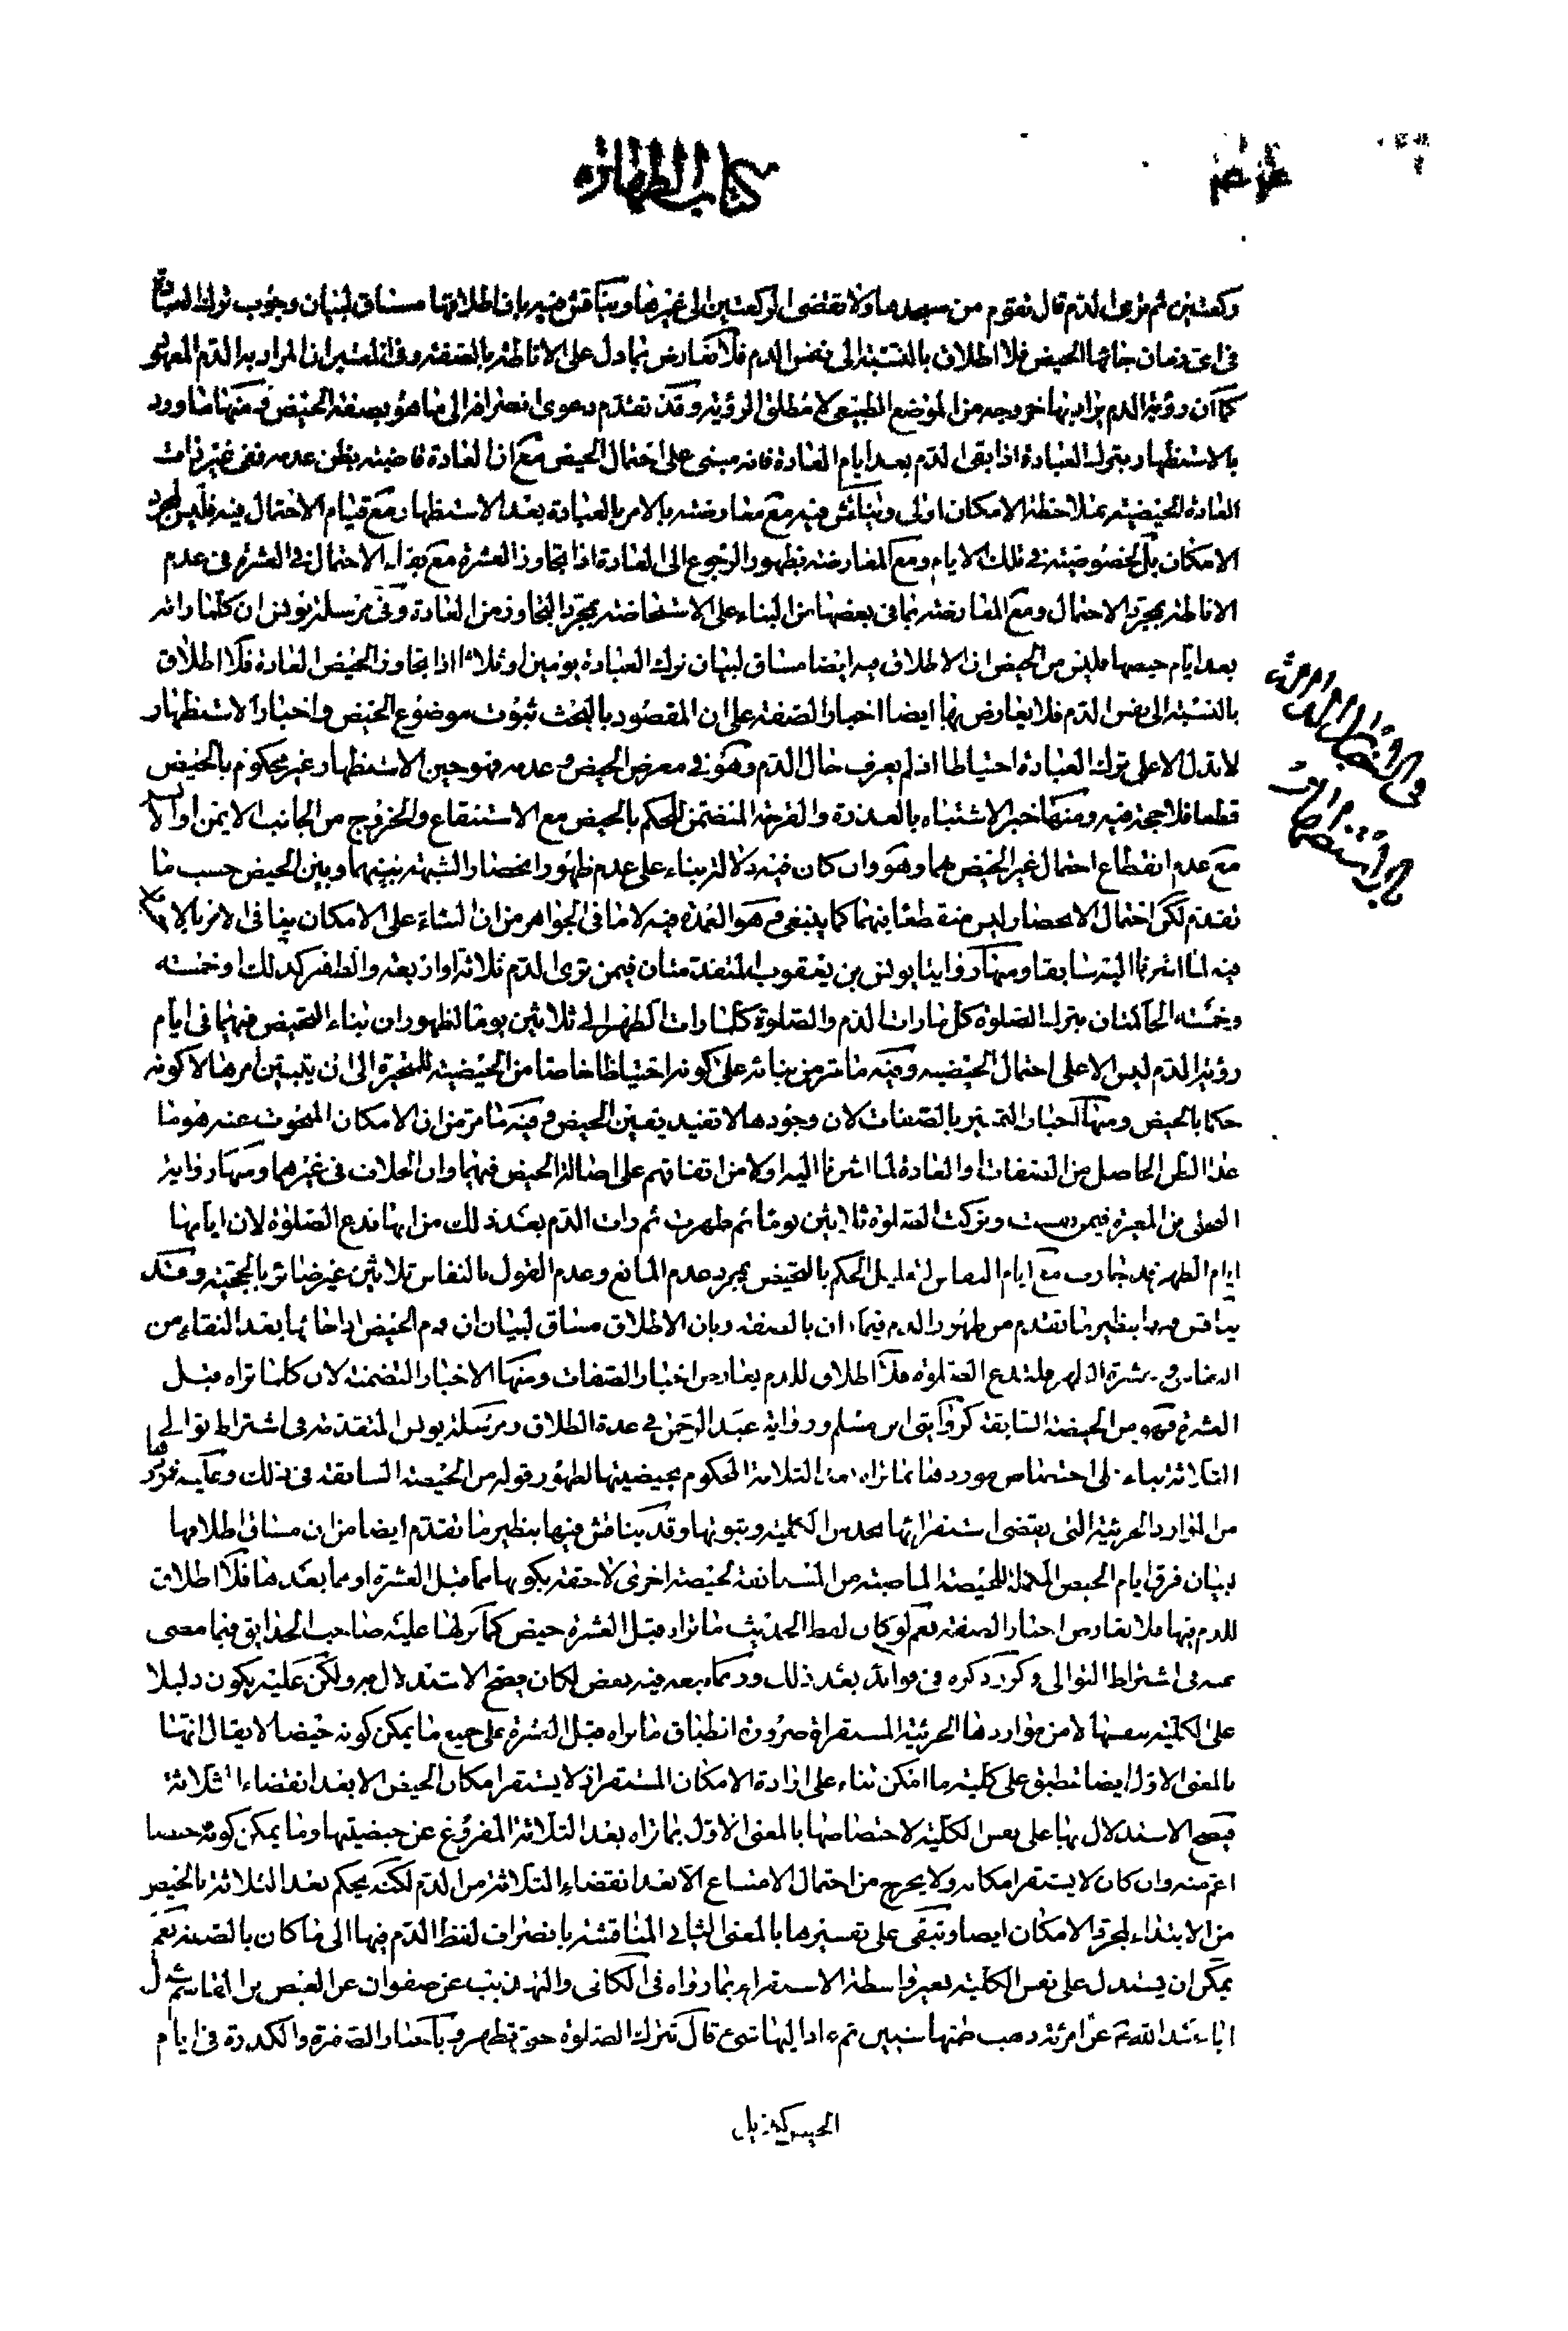 كتاب الطهارة
ركعتين ثم ترى الدم قال تقوم من مسجدها ولا تقضى الركعتين الى غيرها ويناقش فيه بان اطلاقها مساق لبيان وجوب ترك العبادة
فى اى زمان جائها الحيض فلا اطلاق بالنسبة الى نفس الدم فلا تعارض بما دل على الاناطة بالصفة وفى ان المراد به الدم المعهود
كما ان رؤية الدم يراد بها خروجه من الموضع الطبيعى لا مطلق الرؤية وقد تقدم دعوى انصرافه الى ما هو بصفة الحيض ومنها ما ورد
بالاستظهار بترك العبادة اذا بقى الدم بعد ايام العادة فانه مبنى على احتمال الحيض مع ان العادة قاضية بظن عدمه ففى غير ذات
العادة الحيضية بملاحظة الامكان اولى ويناقش فيه مع معارضته بالامر بالعبادة بعد الاستظهار مع قيام الاحتمال فيه فليس لمجرد
الامكان بل لخصوصية فى تلك الايام ومع المعارضة بظهور الرجوع الى العادة اذا تجاوز العشرة مع بقاء الاحتمال فى العشرة فى عدم
الاناطة بمجرد الاحتمال ومع المعارضة بما فى بعضها من البناء على الاستحاضة بمجرد التجاوز من العادة وفى مرسلة يونس ان كلما راته
بعد ايام حيضها فليس من الحيض ان الاطلاق فيه ايضا مساق لبيان ترك العبادة يومين او ثلاثا اذا تجاوز الحيض العادة فلا اطلاق
بالنسبة الى نفس الدم فلا يعارض بها ايضا اخبار الصفة على ان المقصود بالبحث ثبوت موضوع الحيض واخبار الاستظهار
لا تدل الا على ترك العبادة احتياطا اذ لم يعرف حال الدم وهو فى معرض الحيض وعدمه فهو حين الاستظهار غير محكوم بالحيض
قطعا فلا حجة فيه ومنها خبر الاشتباه بالعذرة والقرحة المتضمن للحكم بالحيض مع الاستنقاع والخروج من الجانب الايمن او الايسر
مع عدم انقطاع احتمال غير الحيض بهما وهو وان كان فيه دلالة بناء على عدم ظهور انحصار الشبهة بينهما وبين الحيض حسب ما
تقدم لكن احتمال الانحصار ليس منقطعا فيهما كما ينبغى وهو العمدة فيه لا ما فى الجواهر من ان البناء على الامكان ينافى الامر بالاختبار
فيه لما اشرنا اليه سابقا ومنها روايتا يونس بن يعقوب المتقدمتان فيمن ترى الدم ثلاثة او اربعة والطهر كذلك او خمسة
وخمسة الحاكمتان بترك الصلوة كل ما رات الدم والصلوة كلما رات الطهر الى ثلاثين يوما لظهور ان بناء التحيض فيهما فى ايام
رؤية الدم ليس الا على احتمال الحيضية وفيه ما مر من بنائه على كونه احتياطا خاصا من الحيضية للمتحيرة الى ان يتبين امرها لا كونه
حكما بالحيض ومنها اخبار التمييز بالصفات لان وجودها لا تفيد تعيين الحيض وفيه ما مر من ان الامكان المبحوث عنه هو ما
عدا الظن الحاصل من الصفات والعادة لما اشرنا اليه اولا من اتفاقهم على اصالة الحيض فيهما وان الخلاف فى غيرهما ومنها رواية
ابن المغيرة فيمن نفست وتركت الصلوة ثلاثين يوما ثم طهرت ثم رات الدم بعد ذلك من انها تدع الصلوة لان ايامها
ايام الطهر قد جازت مع ايام النفاس لتعليل الحكم بالتحيض بمجرد عدم المانع وعدم القول بالنفاس ثلاثين غير ضائر بالحجية وقد
يناقش فيه بنظير ما تقدم من ظهور الدم فيما كان بالصفة وبان الاطلاق مساق لبيان ان دم الحيض اذا جائها بعد النقاء من
النفاس وعشرة الطهر فلتدع الصلوة فلا اطلاق للدم يعارض اخبار الصفات ومنها الاخبار المتضمنة لان كلما تراه قبل
العشرة فهو من الحيضة السابقة كروايتى ابن مسلم ورواية عبد الرحمن فى عدة الطلاق ومرسلة يونس المتقدمة فى اشتراط توالى
الثلاثة بناء على اختصاص موردها بما تراه بعد الثلاثة المحكوم بحيضيتها لظهور قوله من الحيضة السابقة فى ذلك وعليه
من الموارد الجزئية التى يقتضى استقرائها بحدس الكلية وثبوتها وقد يناقش فيها بنظير ما تقدم ايضا من ان مساق اطلاقها
لبيان فرق ايام الحيض المكملة للحيضة الماضية من المستانفة لحيضة اخرى لاحقة بكونها مما قبل العشرة او مما بعدها فلا اطلاق
للدم فيها فلا تعارض اخبار الصفة نعم لو كان لفظ الحديث ما تراه قبل العشرة حيض كما نزلها عليه صاحب الحدايق فيما مضى
عنه فى اشتراط التوالى وكرر ذكره فى فوائد بعد ذلك وربما تبعه فيه بعض لكان يصح الاستدلال به ولكن عليه يكون دليلا
على الكلية بنفسها لا من مواردها الجزئية المستقراة ضرورة انطباق ما تراه قبل العشرة على جميع ما يمكن كونه حيضا لا يقال انها
بالمعنى الاول ايضا تنطبق على كلية ما امكن بناء على ارادة الامكان المستقر اذ لا يستقر امكان الحيض الا بعد انقضاء الثلاثة
فيصح الاستدلال بها على نفس الكلية لاختصاصها بالمعنى الاول بما تراه بعد الثلاثة المفروغ عن حيضيتها وما يمكن كونه حيضا
اعم منه وان كان لا يستقر امكانه ولا يخرج من احتمال الامتناع الا بعد انقضاء الثلاثة من الدم لكنه يحكم بعد الثلاثة بالحيض
من الابتداء لمجرد الامكان ايضا وتبقى على تفسيرها بالمعنى الثانى المناقشة بانصراف لفظ الدم فيها الى ما كان بالصفة نعم
يمكن ان يستدل على نفس الكلية بغير واسطة الاستقراء بما رواه فى الكافى والتهذيب عن صفوان عن العيص بن القاسم سئل
ابا عبد الله ع عن امرئة ذهب طمثها سنين ثم عاد اليها شئ قال تترك الصلوة حتى تطهر وباخبار الصفرة والكدرة فى ايام